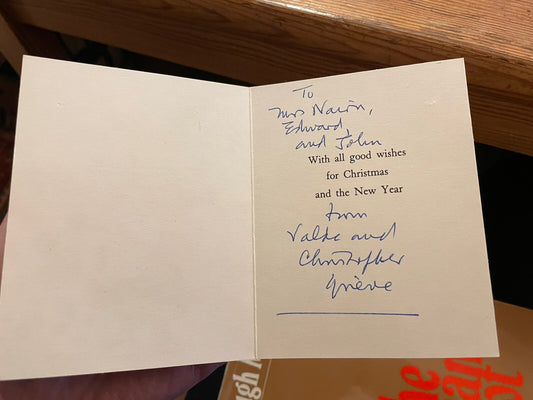 To
Mrs Nairn,
Edward,
and John
With all good wishes
for Christmas
and the New Year
from
Valda and
Christopher
Grieve
ugh
he
an
ot